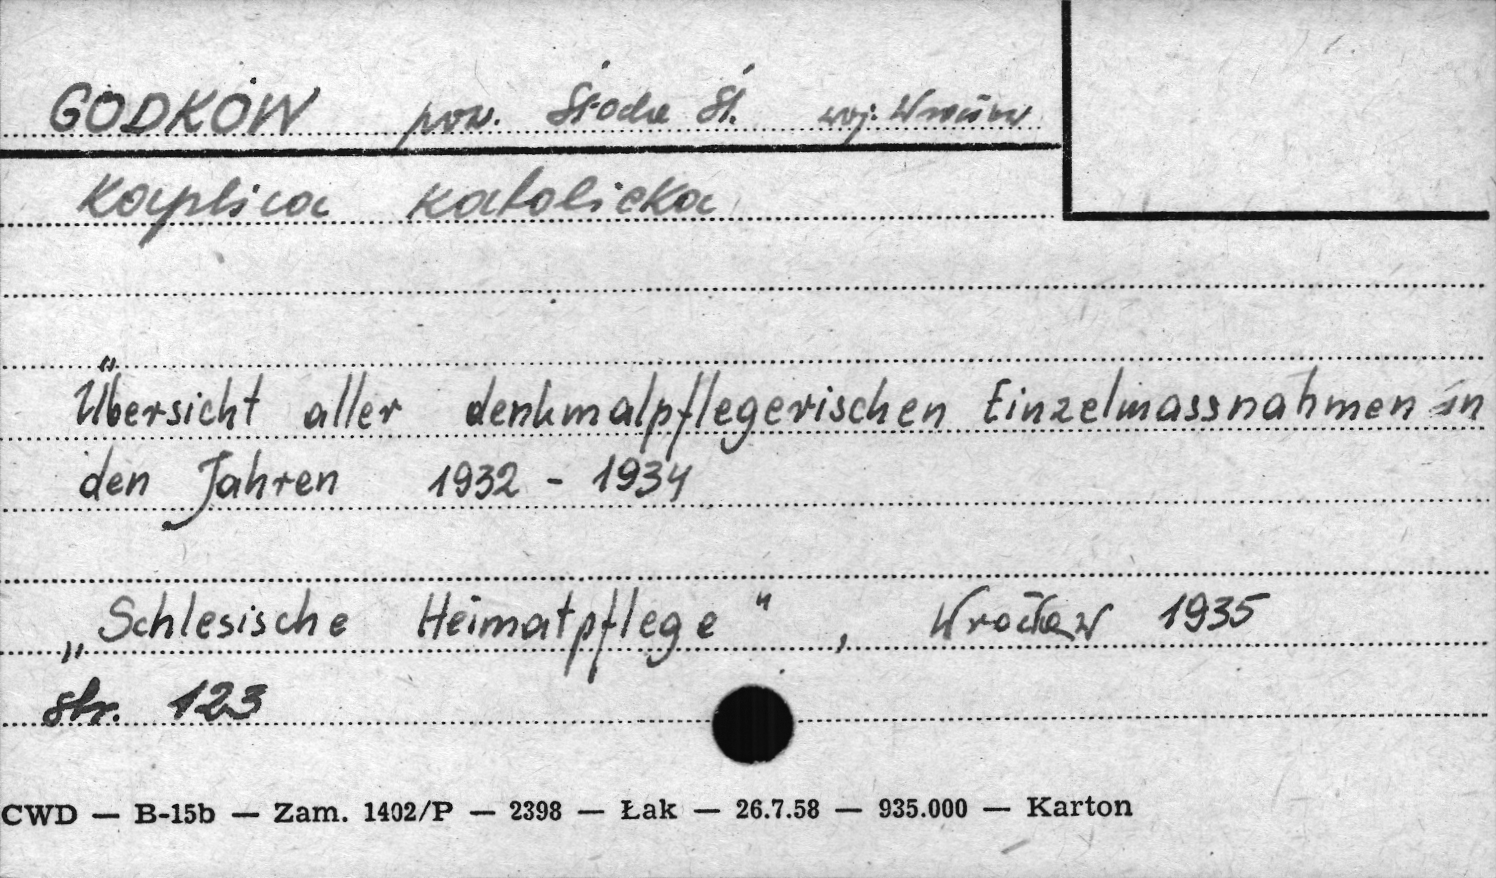 GODKÓW pow. Środa Śl. woj. Wrocław
Kaplica katolicka
Übersicht aller denkmalpflegerischen Einzelmassnahmen in
den Jahren 1932 - 1934
„Schlesische Heimatpflege", Wrocław 1935
str. 123
CWD — B-15b — Zam. 1402/P — 2398 — Łak — 26.7.58 — 935.000 — Karton